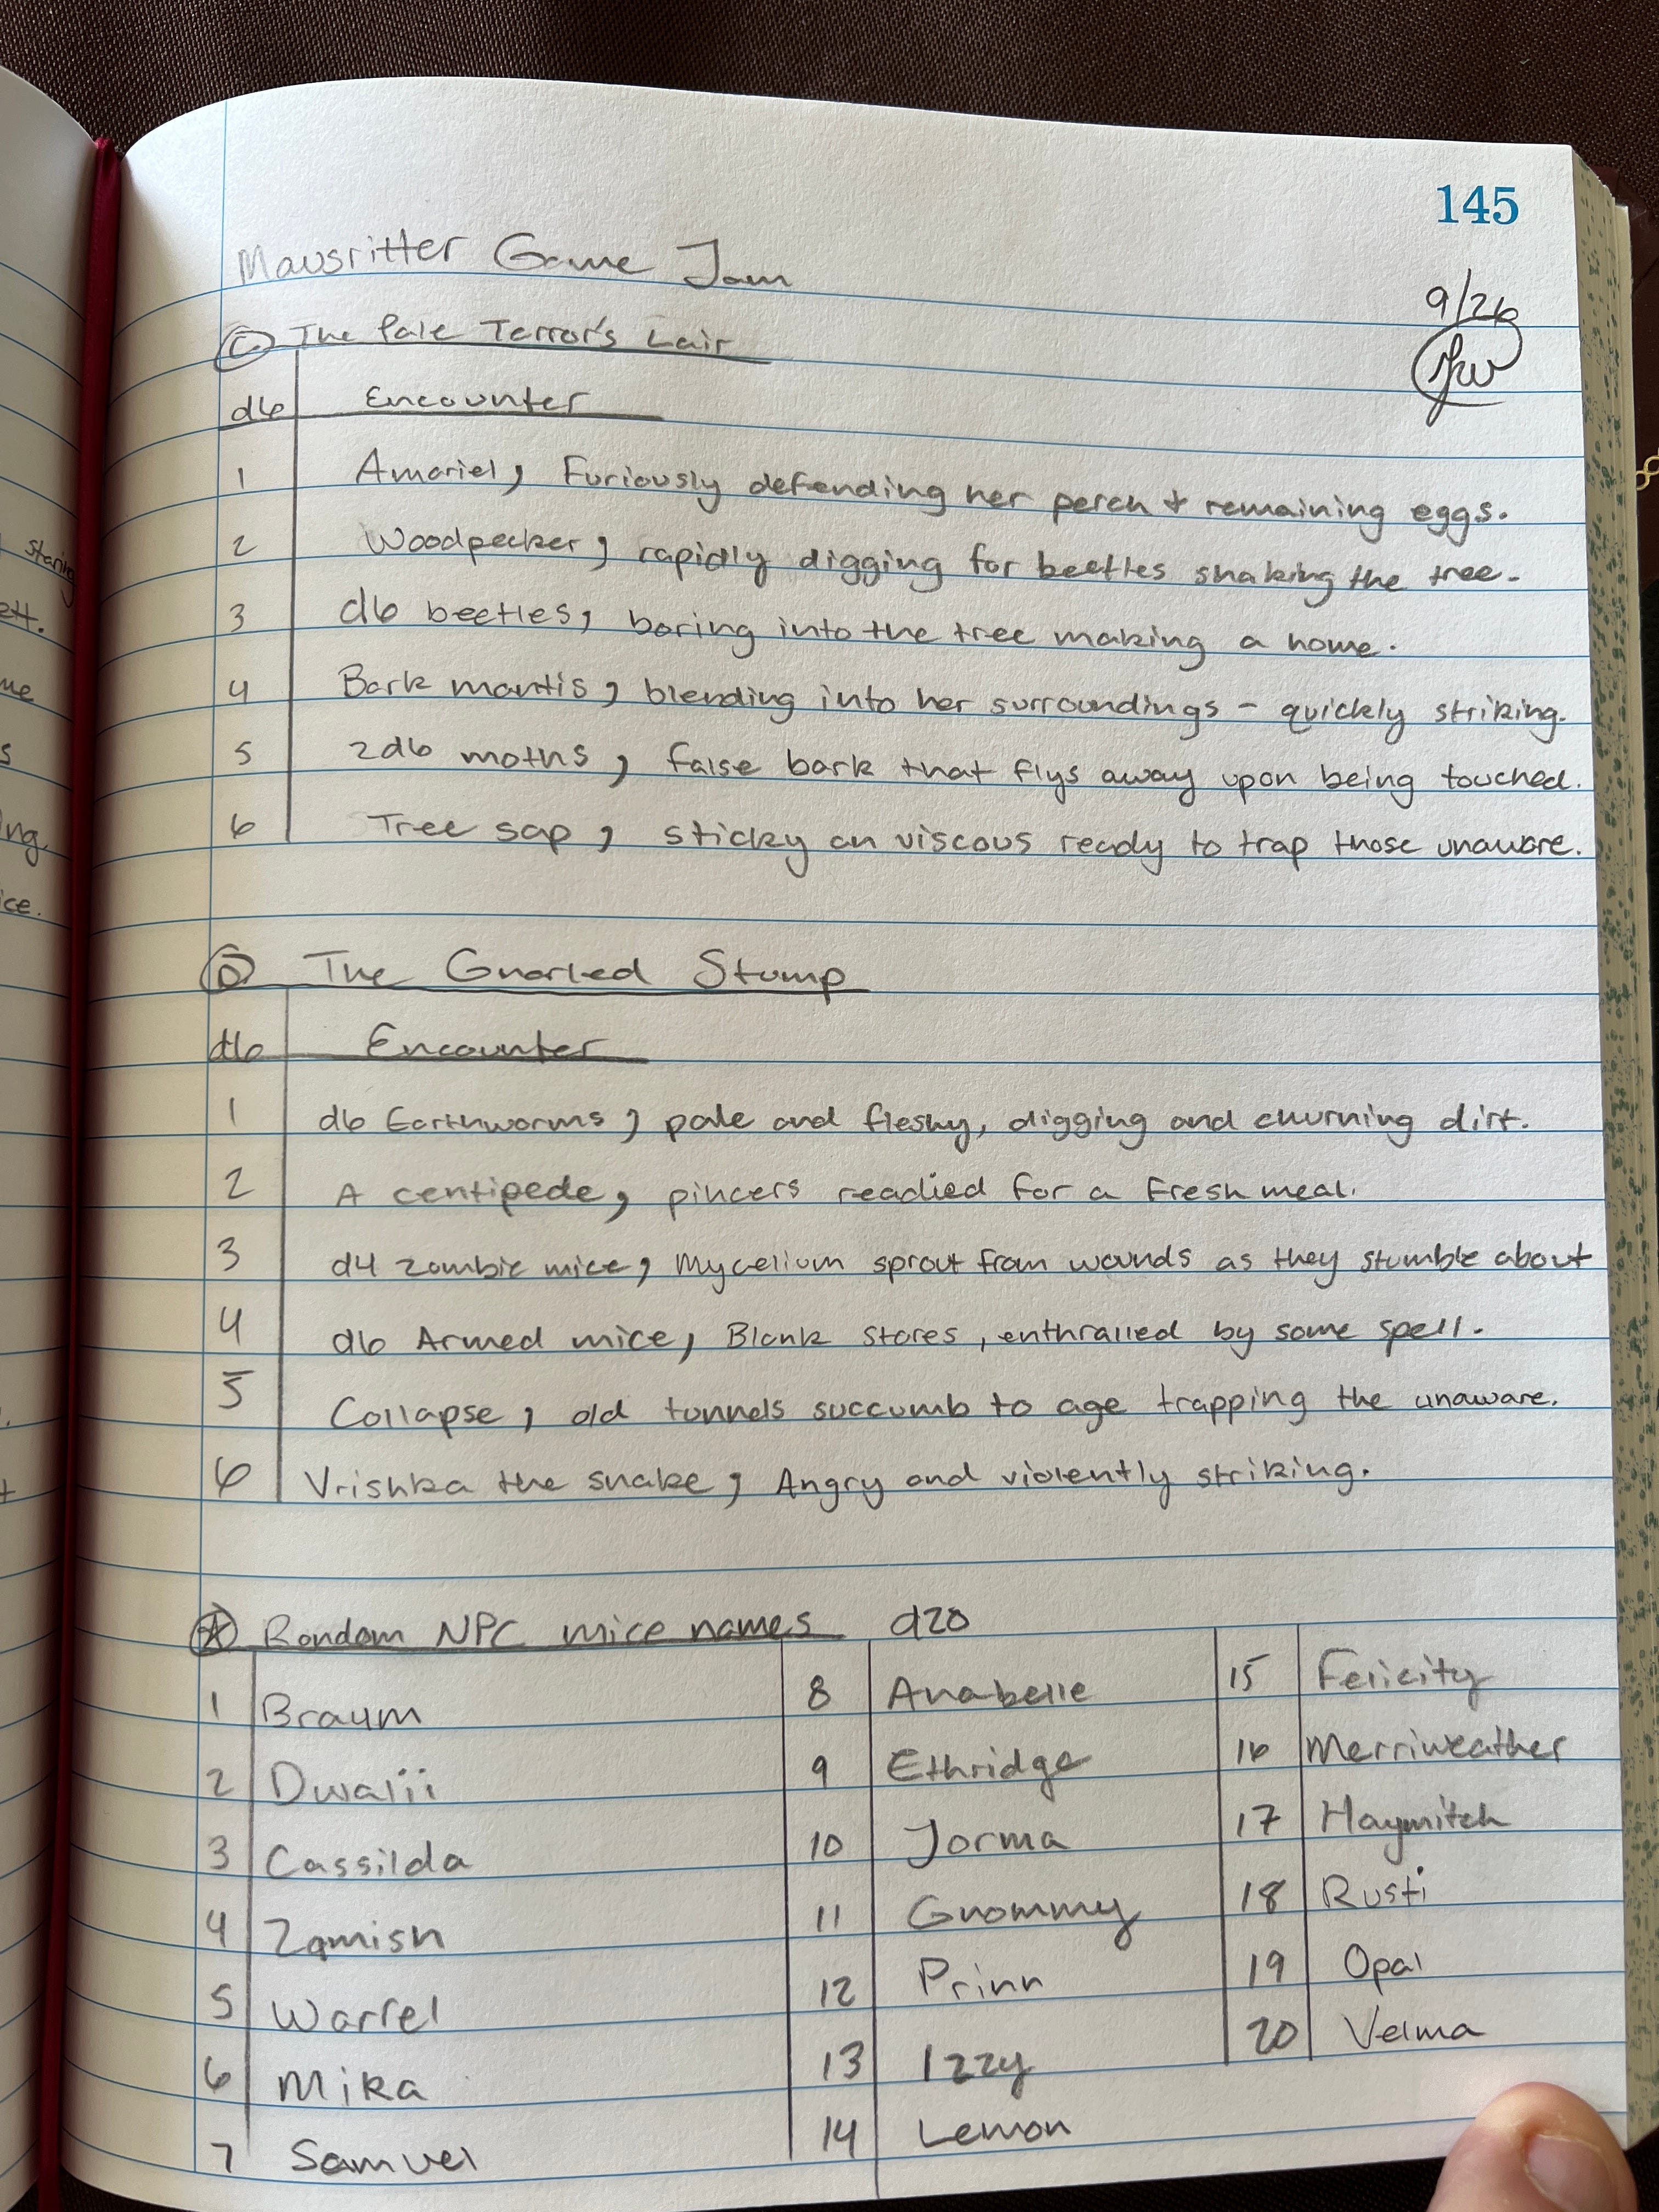 145
Mausritter Game Jam
9/26
C The Pale Terror's Lair
d6 Encounter
1 Amariel; Furiously defending her perch + remaining eggs.
2 Woodpecker; rapidly digging for beetles shaking the tree.
3 d6 beetles; boring into the tree making a home.
4 Bark mantis; blending into her surroundings - quickly striking.
5 2d6 moths; false bark that flys away upon being touched.
6 Tree sap; sticky an viscous ready to trap those unaware.
D The Gnarled Stump
d6 Encounter
1 d6 Earthworms; pale and fleshy, digging and churning dirt.
2 A centipede; pincers readied for a fresh meal.
3 d4 zombie mice; Mycelium sprout from wounds as they stumble about
4 d6 Armed mice; Blank stares, enthralled by some spell.
5 Collapse; old tunnels succumb to age trapping the unaware.
6 Vrishka the snake; Angry and violently striking.
Random NPC mice names d20
1 Braum
2 Dwalii
3 Cassilda
4 Zamish
5 Warrel
6 Mika
7 Samuel
8 Anabelle
9 Ethridge
10 Jorma
11 Gnommy
12 Prinn
13 Izzy
14 Lemon
15 Felicity
16 Merriweather
17 Haymitch
18 Rusti
19 Opal
20 Velma